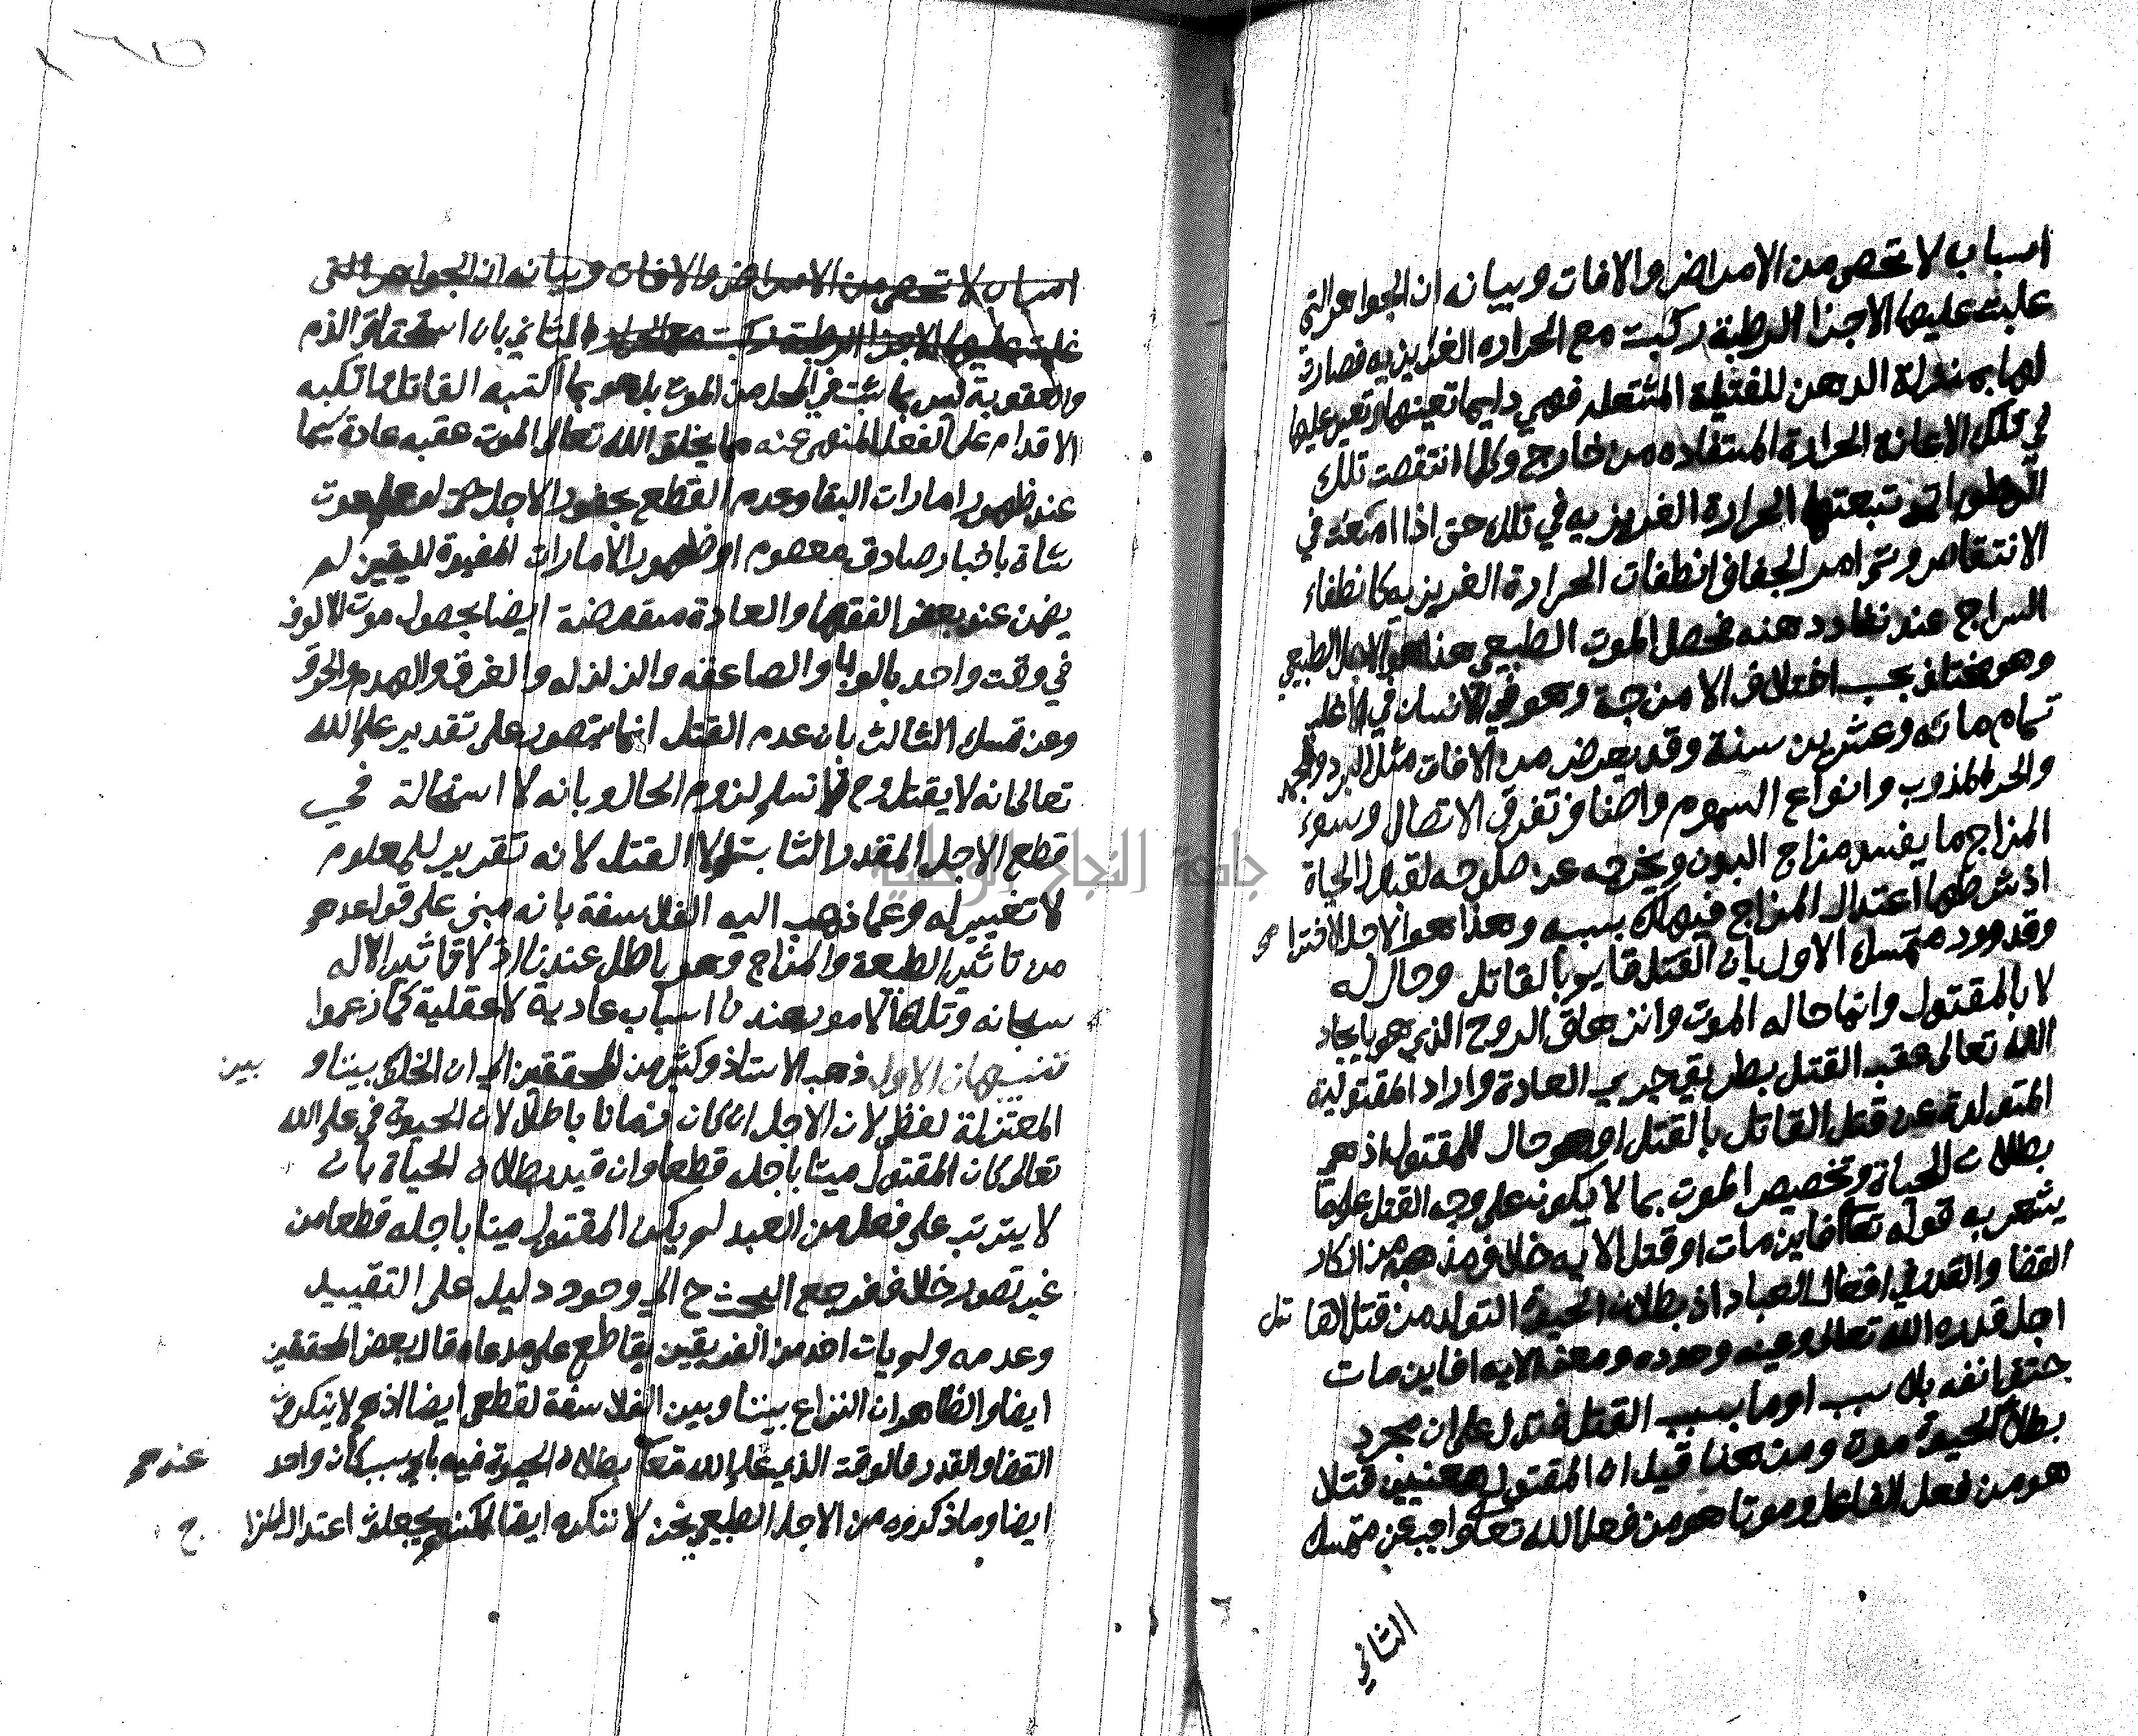 اسباب لا تحصى من الامراض والافات وبيانه ان الجواهر التي
غلبت عليها الاجزا الرطبة ركبت مع الحراره الغريزيه فصارت
لها بمنزلة الدهن للفتيلة المشتعله فهي دايما تعينها وتعين عليها
في تلك الاعانه الحرارة المستفاده من خارج وكلما انتقصت تلك
الرطوبات تبعتها الحرارة الغريزيه في تلك حتى اذا امعنت في
الانتقاص وتم امر الجفاف انطفات الحرارة الغريزيه كانطفاء
السراج عند نفاد دهنه فحصل الموت الطبيعي هذا هو الاجل الطبيعي
وهو مختلف بحسب اختلاف الامزجة وهو في الانسان في الاغلب
تمام مائه وعشرين سنة وقد يعرض من الافات مثل البرد والمجمد
والحر المذوب وانواع السموم واصناف تفرق الاتصال وسوء
المزاج ما يفسد مزاج البدن ويخرجه عن صلوحه لقبول الحياة
اذ شرطها اعتدال المزاج فيهلك بسببه وهذا هو الاجل الاخترا مى
وقد ورد متمسك الاول بان القتل قايم بالقاتل وحال له
لا بالمقتول وانما حاله الموت وانزهاق الروح الذي هو بايجاد
الله تعالى عقب القتل بطريق جري العادة واراد المقتولية
المتولدة عن قتل القاتل بالقتل او هو حال للمقتول اذ هو
بطلان الحياة وتخصيص الموت بما لا يكون على وجه القتل على ما
يشعر به قوله تعا افاين مات او قتل الايه خلاف مذهبه من انكار
القضا والقدر في افعال العباد اذ بطلان الحيوة المتولد من قتل القا تل
اجل قدره الله تعالى وعينه وحدده ومعنى الايه افاين مات
حتف انفه بلا سبب او مات بسبب القتل فتدل على ان مجرد
بطلان الحيوة موت ومن هنا قيل ان المقتول معنيين قتلا
هو من فعل الفاعل وموتا هو من فعل الله تعا واجيب عن متمسك
الثاني
اسباب لا تحصى من الامراض والافات وبيانه ان الجواهر التي
غلبت عليها الاجزا الرطبة ركبت مع الحراره الثاني بان استحقاق الذم
والعقوبة ليس بما يثبت في المحل من الموت بل هو بما اكتسبه القاتل وارتكبه
الاقدام على الفعل المنهي عنه مما يخلق الله تعالى الموت عقبه عادة سيما
عند ظهور امارات البقا وعدم القطع بحضور الاجل حتى لو علم موت
شاة باخبار صادق معصوم او ظهور الامارات المفيدة لليقين لم
يضمن عند بعض الفقها والعادة منقوضة ايضا بحصول موت الالوف
في وقت واحد بالوبا والصاعقه والزلزله والغرق والهدم والحرق
وعن تمسك الثالث بان عدم القتل انما يتصور على تقدير علم الله
تعالى انه لا يقتل وح فلا نسلم لزوم المحال وبانه لا استحالة في
قطع الاجل المقدر الثابت لولا القتل لانه تقرير للمعلوم
لا تغيير له وعما ذهب اليه الفلاسفة بانه مبنى على قواعدهم
من تاثير الطبيعة والمزاج وهو باطل عندنا اذ لا تاثير الا له
سبحانه وتلك الامور عندنا اسباب عادية لا عقلية كما زعموا
تنبيهان الاول ذهب الاستاذ وكثير من المحققين الى ان الخلاف بيننا و بين
المعتزلة لفظي لان الاجل ان كان زمانا باطلان الحيوة في علم الله
تعالى كان المقتول ميتا باجله قطعا وان قيد بطلان الحياة بان
لا يترتب على فعل من العبد لم يكن المقتول ميتا باجله قطعا من
غير تصور خلاف فيرجع البحث ح الى وجود دليل على التقييد
وعدمه ولم يات احد من الفريقين بقاطع على مدعاه وقال بعض المحققين
ايضا والظاهر ان النزاع بيننا وبين الفلاسفة لفظي ايضا اذ هم لا ينكرون
القضا والقدر فالوقت الذي علم الله تعا بطلان الحيوة فيه باي سبب كان واحد عندهم
ايضا وما ذكروه من الاجل الطبيعي نحن لا ننكره ايضا لكنهم يجعلون اعتدال المزا ج